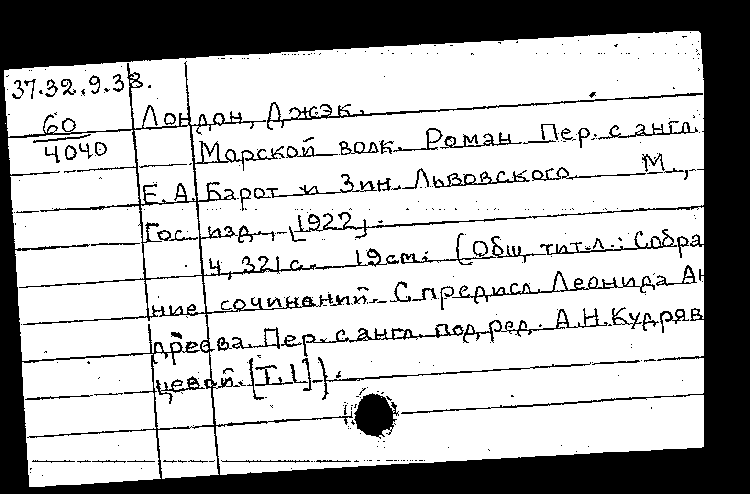 37.32.9.38.
60
4040
Лондон, Джэк.
Морской волк. Роман Пер. с англ.
Е. А. Барот и Зин. Львовского М.,
Гос. изд., [1922].
4, 321 с. 19 см. (Общ. тит. л.: Собра
ние сочинений. С предисл. Леонида Ан
дреева. Пер. с англ. под ред. А.Н. Кудряв
цевой. [Т. 1]).